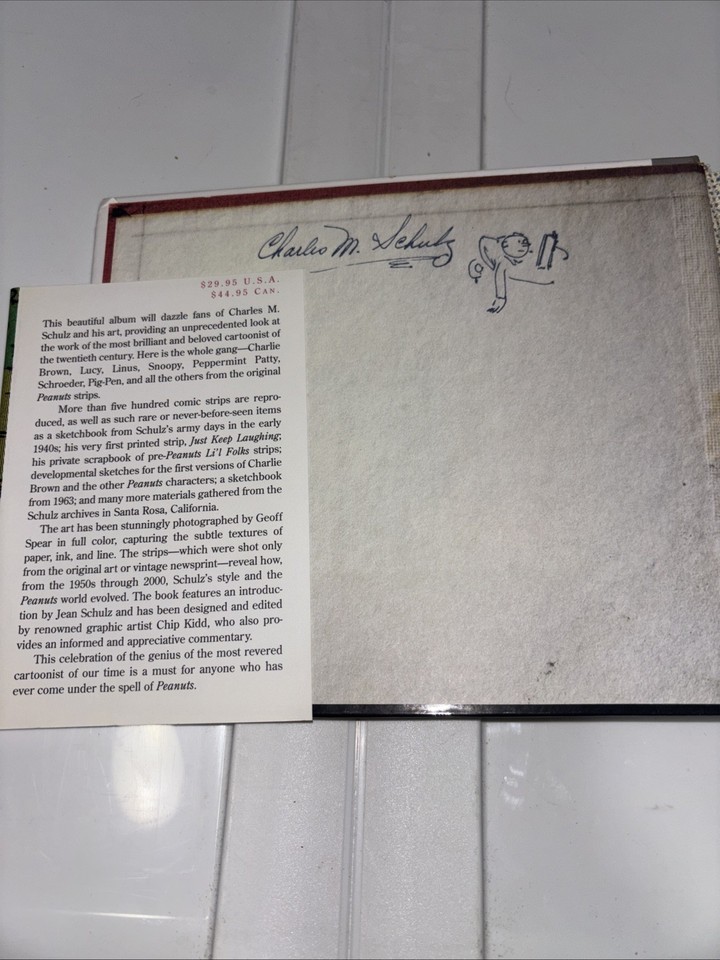 Charles M. Schulz
$29.95 U.S.A.
$44.95 CAN.
This beautiful album will dazzle fans of Charles M.
Schulz and his art, providing an unprecedented look at
the work of the most brilliant and beloved cartoonist of
the twentieth century. Here is the whole gang—Charlie
Brown, Lucy, Linus, Snoopy, Peppermint Patty,
Schroeder, Pig-Pen, and all the others from the original
Peanuts strips.
More than five hundred comic strips are repro-
duced, as well as such rare or never-before-seen items
as a sketchbook from Schulz's army days in the early
1940s; his very first printed strip, Just Keep Laughing;
his private scrapbook of pre-Peanuts Li'l Folks strips;
developmental sketches for the first versions of Charlie
Brown and the other Peanuts characters; a sketchbook
from 1963; and many more materials gathered from the
Schulz archives in Santa Rosa, California.
The art has been stunningly photographed by Geoff
Spear in full color, capturing the subtle textures of
paper, ink, and line. The strips—which were shot only
from the original art or vintage newsprint—reveal how,
from the 1950s through 2000, Schulz's style and the
Peanuts world evolved. The book features an introduc-
tion by Jean Schulz and has been designed and edited
by renowned graphic artist Chip Kidd, who also pro-
vides an informed and appreciative commentary.
This celebration of the genius of the most revered
cartoonist of our time is a must for anyone who has
ever come under the spell of Peanuts.